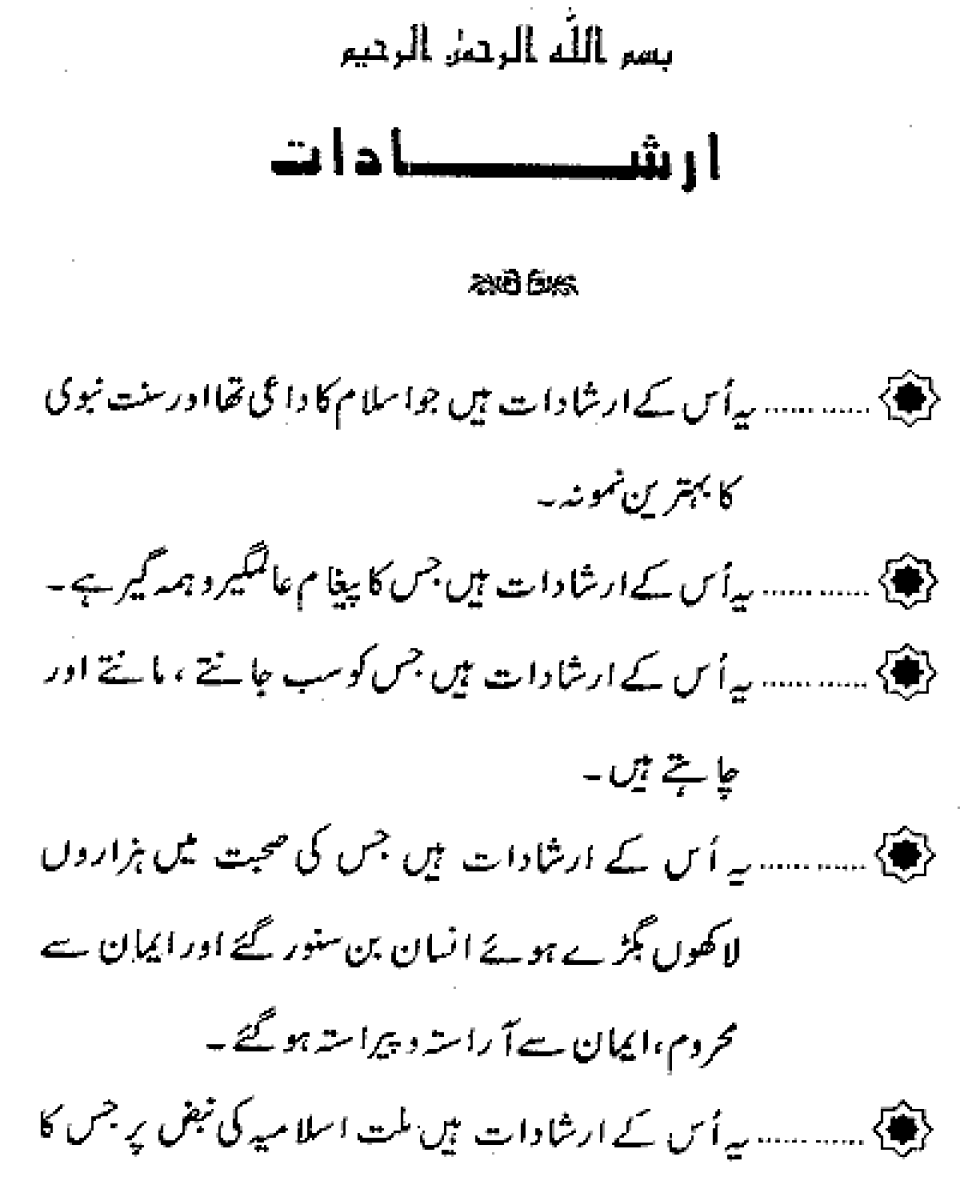 بسم اللہ الرحمٰن الرحیم
ارشـــــــادات
............ یہ اُس کے ارشادات ہیں جو اسلام کا داعی تھا اور سنت نبوی
کا بہترین نمونہ۔
............ یہ اُس کے ارشادات ہیں جس کا پیغام عالمگیر و ہمہ گیر ہے۔
............ یہ اُس کے ارشادات ہیں جس کو سب جانتے ، مانتے اور
چاہتے ہیں۔
............ یہ اُس کے ارشادات ہیں جس کی صحبت میں ہزاروں
لاکھوں بگڑے ہوئے انسان بن سنور گئے اور ایمان سے
محروم، ایمان سے آراستہ و پیراستہ ہو گئے۔
............ یہ اُس کے ارشادات ہیں ملت اسلامیہ کی نبض پر جس کا